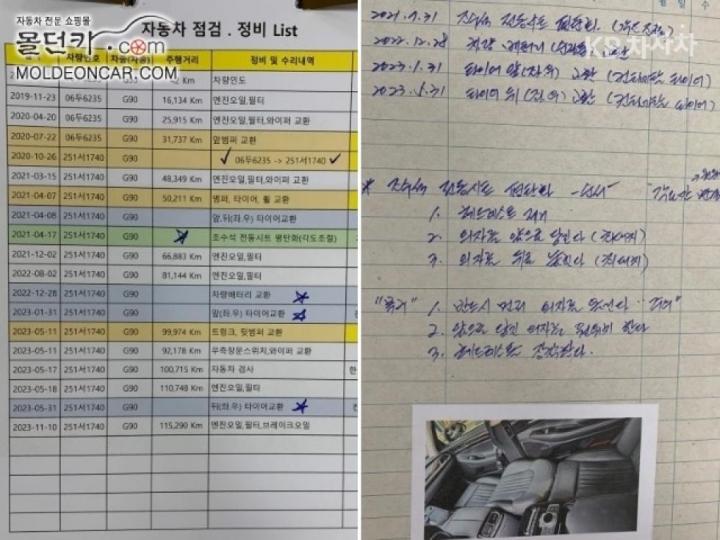 자동차 전문 쇼핑몰
몰던카.com
MOLDEONCAR.COM
자동차 점검 . 정비 List
차량번호 차종(차명) 주행거리 정비 및 수리내역
G90 Km 차량인도
2019-11-23 06두6235 G90 16,134 Km 엔진오일,필터
2020-04-20 06두6235 G90 25,915 Km 엔진오일,필터,와이퍼 교환
2020-07-22 06두6235 G90 31,737 Km 앞범퍼 교환
2020-10-26 251서1740 G90 06두6235 -> 251서1740
2021-03-15 251서1740 G90 48,349 Km 엔진오일,필터,와이퍼 교환
2021-04-07 251서1740 G90 50,211 Km 범퍼, 타이어, 휠 교환
2021-04-08 251서1740 G90 앞,뒤(좌,우) 타이어교환
2021-04-17 251서1740 G90 조수석 전동시트 평탄화(각도조절)
2021-12-02 251서1740 G90 66,883 Km 엔진오일,필터
2022-08-02 251서1740 G90 81,144 Km 엔진오일,필터
2022-12-28 251서1740 G90 차량배터리 교환
2023-01-31 251서1740 G90 앞(좌,우) 타이어교환
2023-05-11 251서1740 G90 99,974 Km 트렁크, 뒷범퍼 교환
2023-05-11 251서1740 G90 92,178 Km 우측창문스위치,와이퍼 교환
2023-05-17 251서1740 G90 100,715 Km 자동차 검사
2023-05-18 251서1740 G90 110,748 Km 엔진오일,필터
2023-05-31 251서1740 G90 뒤(좌,우) 타이어교환
2023-11-10 251서1740 G90 115,290 Km 엔진오일,필터,브레이크오일
월 일 수
KS 차차차
조수석 전동시트 평탄화
2022.12.28 차량 교환
2023.1.31 타이어 앞(좌,우) 교환
타이어 뒤(좌,우) 교환
조수석 전동시트 평탄화
1. 헤드레스트 제거
2. 의자를 앞으로 당긴다
3. 의자를 뒤로
1. 반드시 먼저 의자를
2. 앞으로 당긴 의자를 한다
3. 헤드레스트 장착한다.